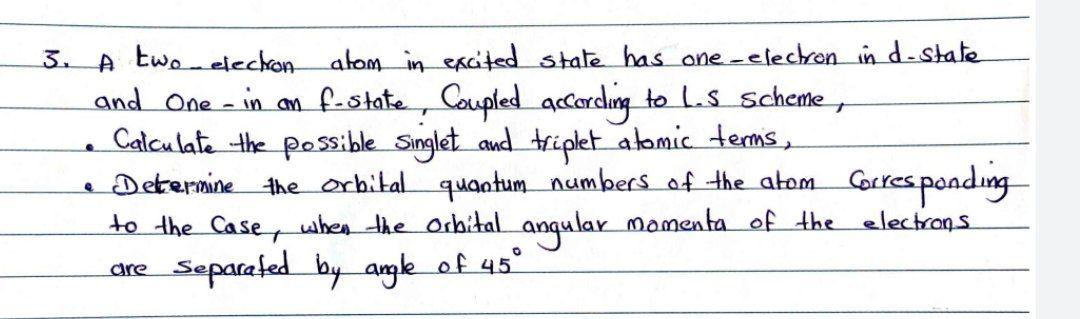 3. A two-electron atom in excited state has one-electron in d-state
and One-in an f-state, Coupled according to L.S scheme,
• Calculate the possible Singlet and triplet atomic terms,
• Determine the orbital quantum numbers of the atom Corresponding
to the Case, when the Orbital angular momenta of the electrons
are separated by angle of 45°